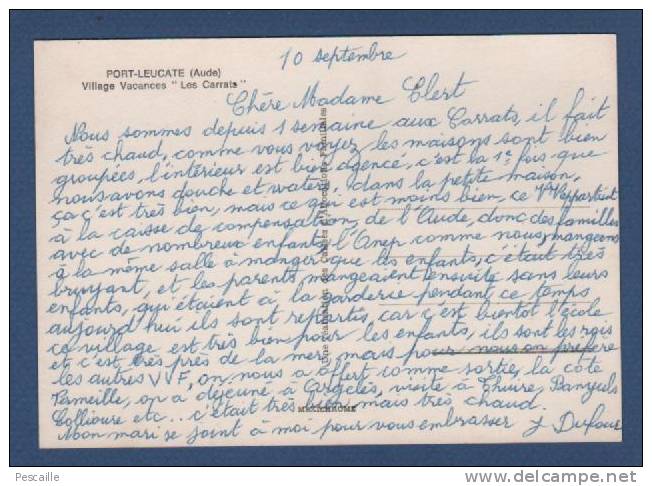 10 septembre
PORT-LEUCATE (Aude)
Village Vacances "Les Carrats"
Chère Madame Clert
Nous sommes depuis 1 semaine aux Carrats, il fait
très chaud, comme vous voyez les maisons sont bien
groupées, l'intérieur est bien agencé, c'est la 1e fois que
nous avons douche et waters, dans la petite maison,
ça c'est très bien, mais ce qui est moins bien, ce V appartient
à la caisse de compensation, de l'Aude, donc des familles
avec de nombreux enfants, l'Anep comme nous, mangeons
à la même salle à manger que les enfants, c'était très
bruyant, et les parents mangeaient ensuite sans leurs
enfants, qui étaient à la garderie pendant ce temps
aujourd'hui ils sont repartis, car c'est bientôt l'école
ce village est très bien pour les enfants, ils sont les rois
et c'est très près de la mer, mais pour nous on préfère
les autres VVF, on nous a offert comme sortie, la côte
Vermeille, on a déjeuné à Argelès, visite à Thuire, Banyuls
Collioure etc... c'était très bien, mais très chaud.
Mon mari se joint à moi pour vous embrasser J Dufour
MEXICHROME
Pescaille
www.delcampe.net